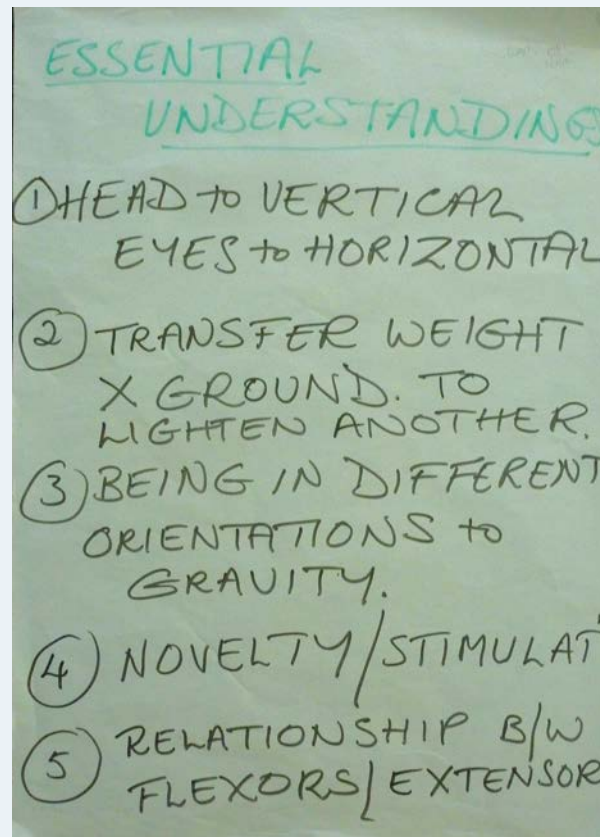 ESSENTIAL
UNDERSTANDINGS
① HEAD to VERTICAL
EYES to HORIZONTAL
② TRANSFER WEIGHT
X GROUND. TO
LIGHTEN ANOTHER.
③ BEING IN DIFFERENT
ORIENTATIONS to
GRAVITY.
④ NOVELTY/STIMULAT
⑤ RELATIONSHIP B/W
FLEXORS/EXTENSOR